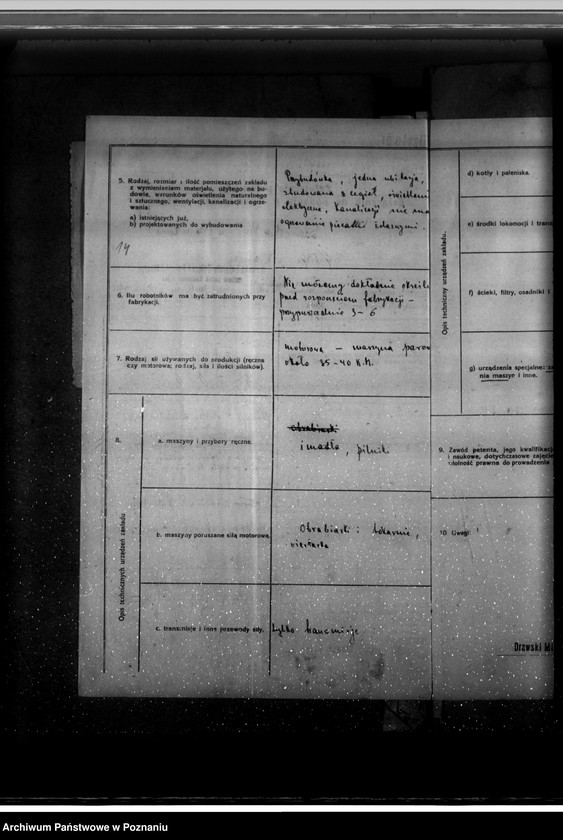 5. Rodzaj, rozmiar i ilość pomieszczeń zakładu
z wymienieniem materjału, użytego na bu-
dowle, warunków oświetlenia naturalnego
i sztucznego, wentylacji, kanalizacji i ogrze-
wania:
a) istniejących już,
b) projektowanych do wybudowania
14
Przybudówka, jedna ubikacja,
zbudowana z cegieł, oświetleni
elektryczne, kanalizacji nie ma
ogrzewanie piecykami żelaznymi.
6. Ilu robotników ma być zatrudnionych przy
fabrykacji.
Nie możemy dokładnie określ
przed rozpoczęciem fabrykacji –
przypuszczalnie 3–6
7. Rodzaj sił używanych do produkcji (ręczna
czy motorowa; rodzaj, siła i ilości silników).
motorowa – maszyna parow
około 35–40 K.M.
8.
Opis technicznych urządzeń zakładu
a. maszyny i przybory ręczne.
obrabiarki
imadła, pilniki
b. maszyny poruszane siłą motorową.
Obrabiarki: tokarnie,
wiertarka
c. transmisje i inne przewody siły.
tylko transmisje
Opis techniczny urządzeń zakładu.
d) kotły i paleniska.
e) środki lokomocji i trans
f) ścieki, filtry, osadniki i
g) urządzenia specjalne:
nia maszyn i inne.
9. Zawód petenta, jego kwalifikacj
i naukowe, dotychczasowe zajęcie
zdolność prawna do prowadzenia
10. Uwagi
Drawski Mł
Archiwum Państwowe w Poznaniu